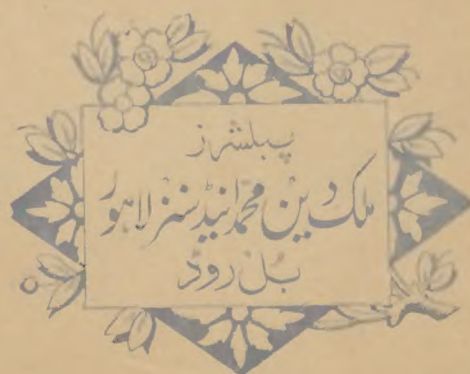 پبلشرز
ملک دین محمد اینڈ سنز لاہور
بل روڈ